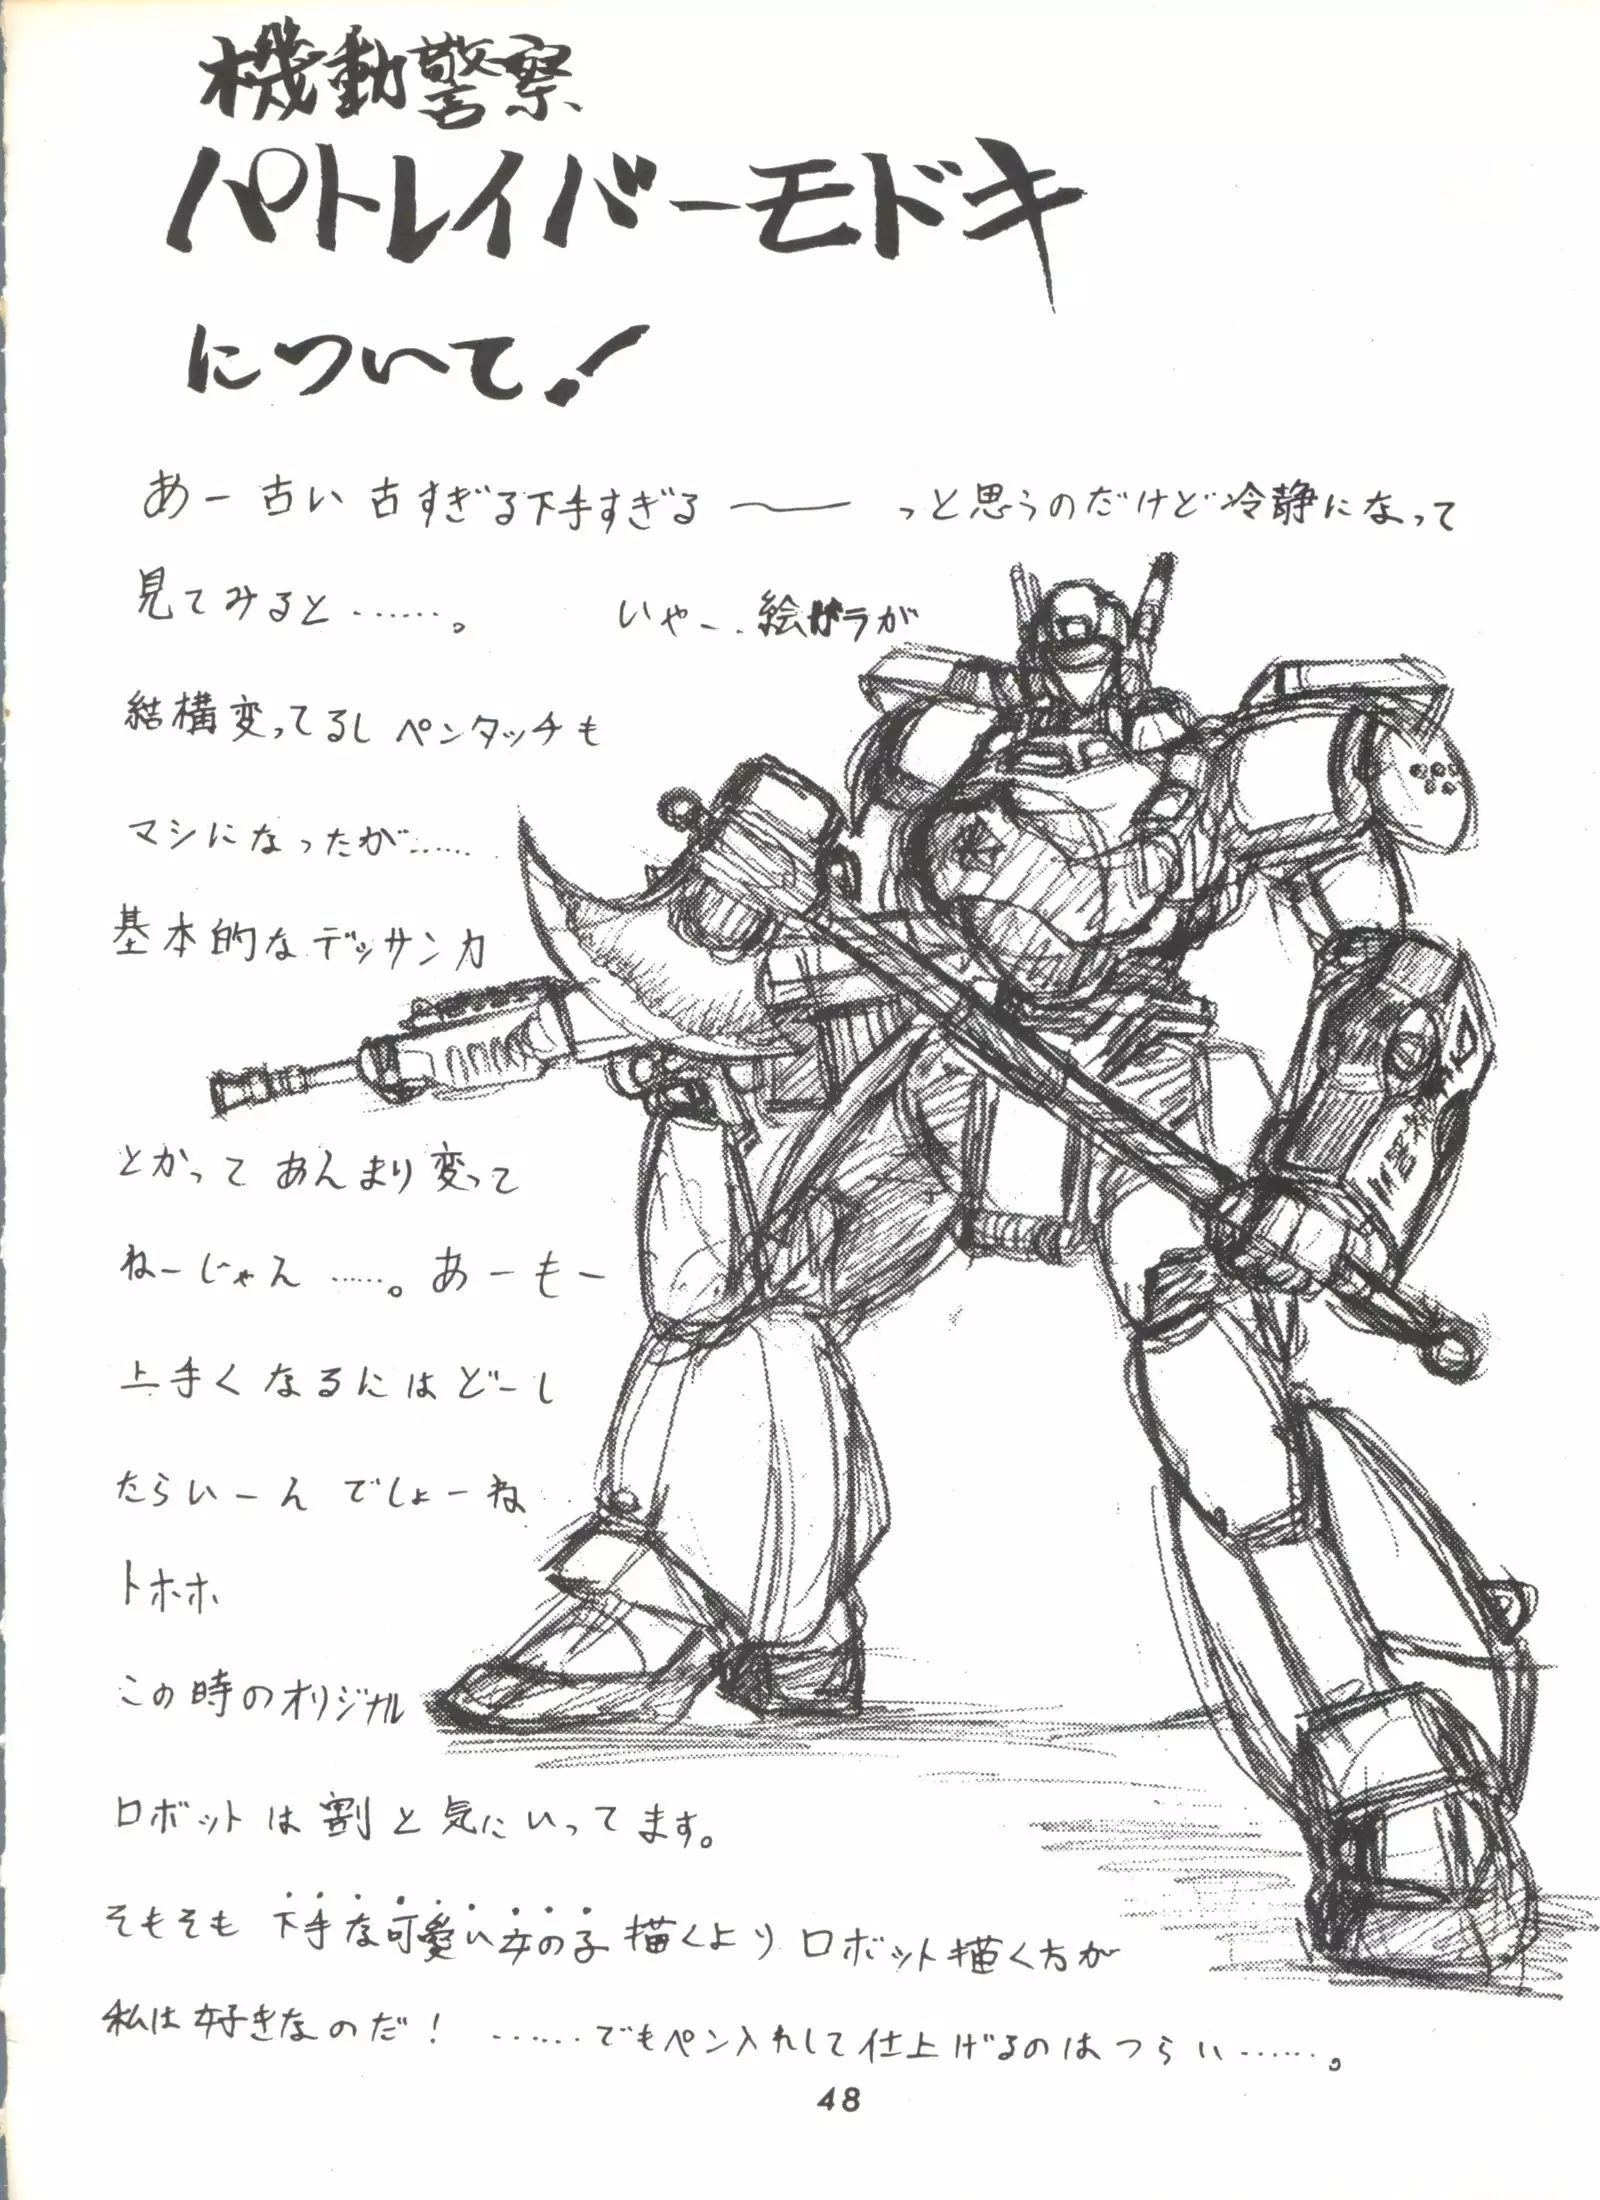 機動警察
パトレイバーモドキ
について!
あー古い古すぎる下手すぎる〜っと思うのだけど冷静になって
見てみると……。 いゃー.絵がラが
結構変ってるしペンタッチも
マシになったが……
基本的なデッサンカ
とかってあんまり変って
ねーじゃん……。あーもー
上手くなるにはどーし
たらいーんでしょーね
トホホ
この時のオリジナル
ロボットは割と気にいってます。
そもそも下手な可愛い女の子描くよりロボット描く方が
私は好きなのだ! ……でもペン入れして仕上げるのはつらい……。
48